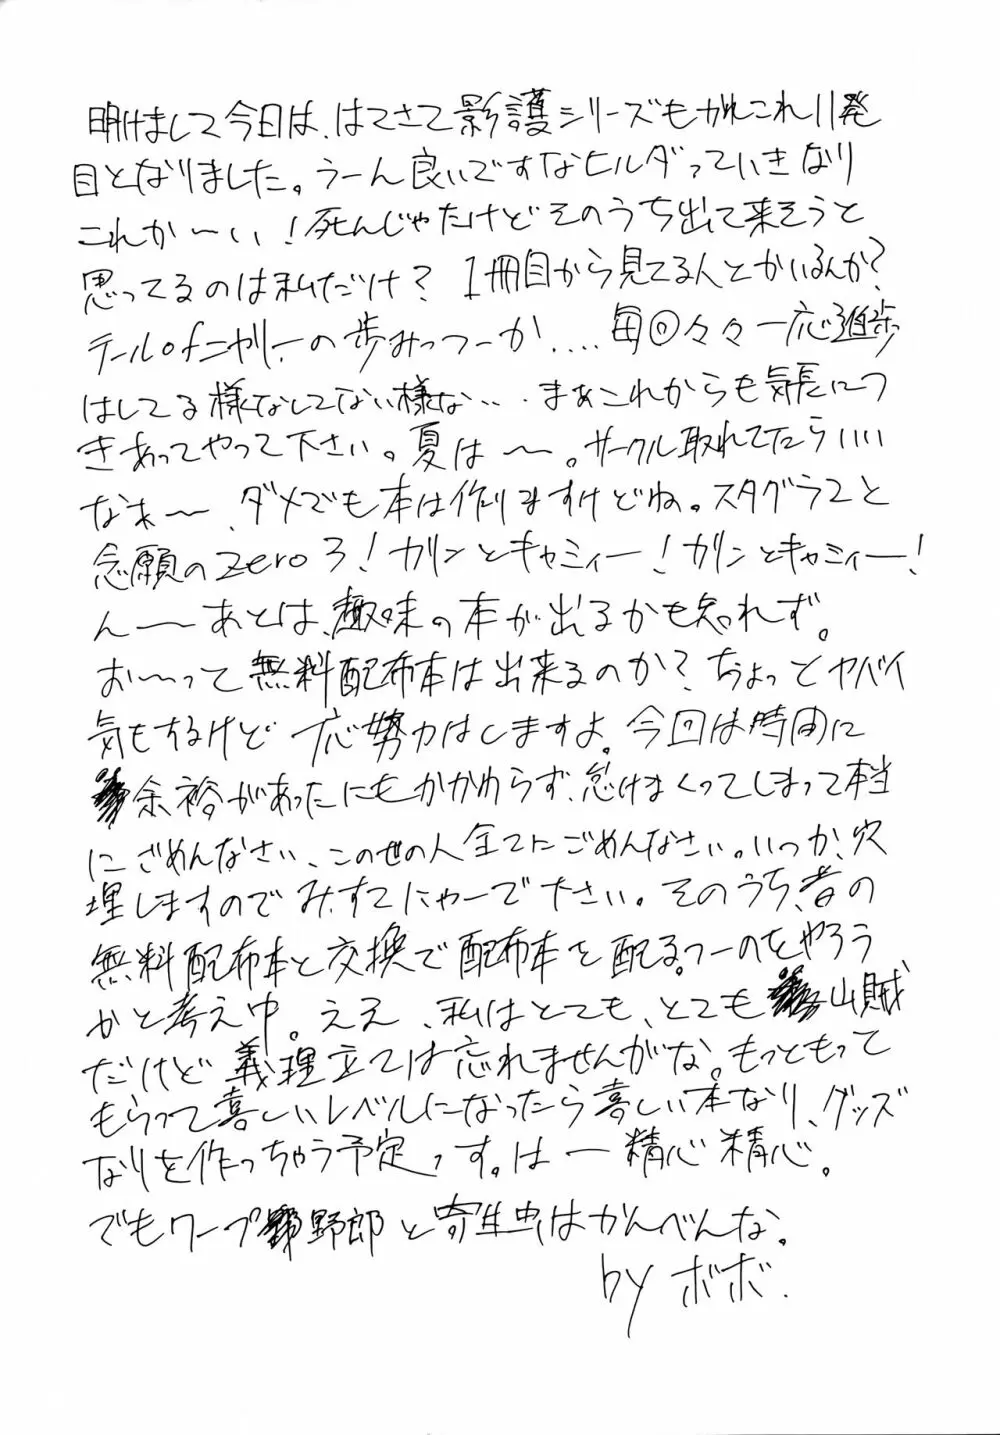 明けまして今日は、はてさて影護シリーズもかれこれ11発
目となりました。うーん良いですなヒルダっていきなり
これか〜い!死んじゃたけどそのうち出て来そうと
思ってるのは私だけ? 1冊目から見てる人とかいるんか?
テールofニャリーの歩みっつーか....毎回々々一応進歩
はしてる様なしてない様な・・・まあこれからも気長につ
きあってやって下さい。夏は〜。サークル取れてたらいい
なぁ〜、ダメでも本は作りますけどね。スタグラ2と
念願のzero3!カリンとキャミィー!カリンとキャミィー!
ん〜あとは、趣味の本が出るかも知れず。
お〜って無料配布本は出来るのか?ちょっとヤバイ
気もするけど一応努力はしますよ。今回は時間に
余裕があったにもかかわらず、怠けまくってしまって本当
にごめんなさい、この世の人全てにごめんなさい。いつか、穴
埋しますのでみすてにゃーで下さい。そのうち、昔の
無料配布本と交換で配布本を配るっつーのをやろう
かと考え中。ええ、私はとても、とても山賊
だけど義理立ては忘れませんがな。もっともって
もらって喜しいレベルになったら喜しい本なり、グッズ
なりを作っちゃう予定っす。はー精心精心。
でもワープ野郎と寄生虫はかんべんな。
by ボボ.